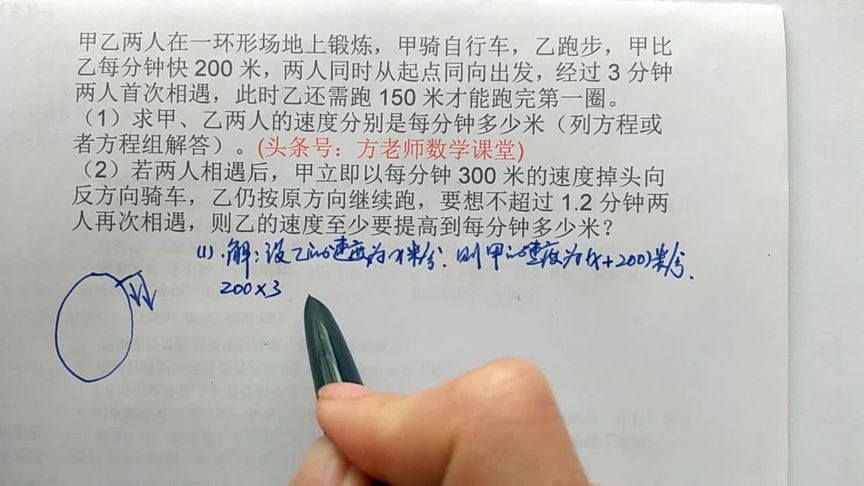 甲乙两人在一环形场地上锻炼，甲骑自行车，乙跑步，甲比
乙每分钟快 200 米，两人同时从起点同向出发，经过 3 分钟
两人首次相遇，此时乙还需跑 150 米才能跑完第一圈。
（1）求甲、乙两人的速度分别是每分钟多少米（列方程或
者方程组解答）。(头条号：方老师数学课堂)
（2）若两人相遇后，甲立即以每分钟 300 米的速度掉头向
反方向骑车，乙仍按原方向继续跑，要想不超过 1.2 分钟两
人再次相遇，则乙的速度至少要提高到每分钟多少米？
(1).解：设乙的速度为x米/分．则甲的速度为(x+200)米/分．
200×3